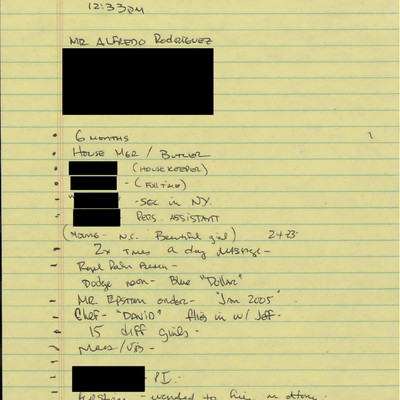 12:33pm
MR ALFREDO RODRIGUEZ
- 6 MONTHS 1
- HOUSE MGR / BUTLER
- (HOUSEKEEPER)
- - (FULL TIME)
- - SEC in NY.
- PERS. ASSISTANT
(YOUNG - N.C. Beautiful girl) 24-25
- 2x Times a day MASSAGE -
- Royal Palm
Dodge - Blue "Dollar"
- MR Epstein order - "Jan 2005"
- Chef - "DAVID" flies in w/ Jeff -
- 15 diff girls -
-
- P.I. -
- wanted to